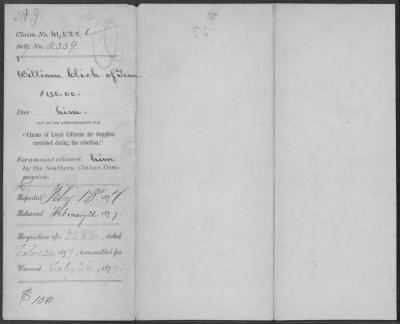 Claim No. 41,528
Sett. No. 2339
William Click of Tenn.
$150.00.
Due him.
OUT OF THE APPROPRIATION FOR
"Claims of Loyal Citizens for Supplies
furnished during the rebellion."
For amount allowed him
by the Southern Claims Com-
mission.
Reported Feby 13th 187
Returned February 21. 1877.
Requisition No. dated
Feby 1877, transmitted for
Warrant Feby 26, 1877.
$150